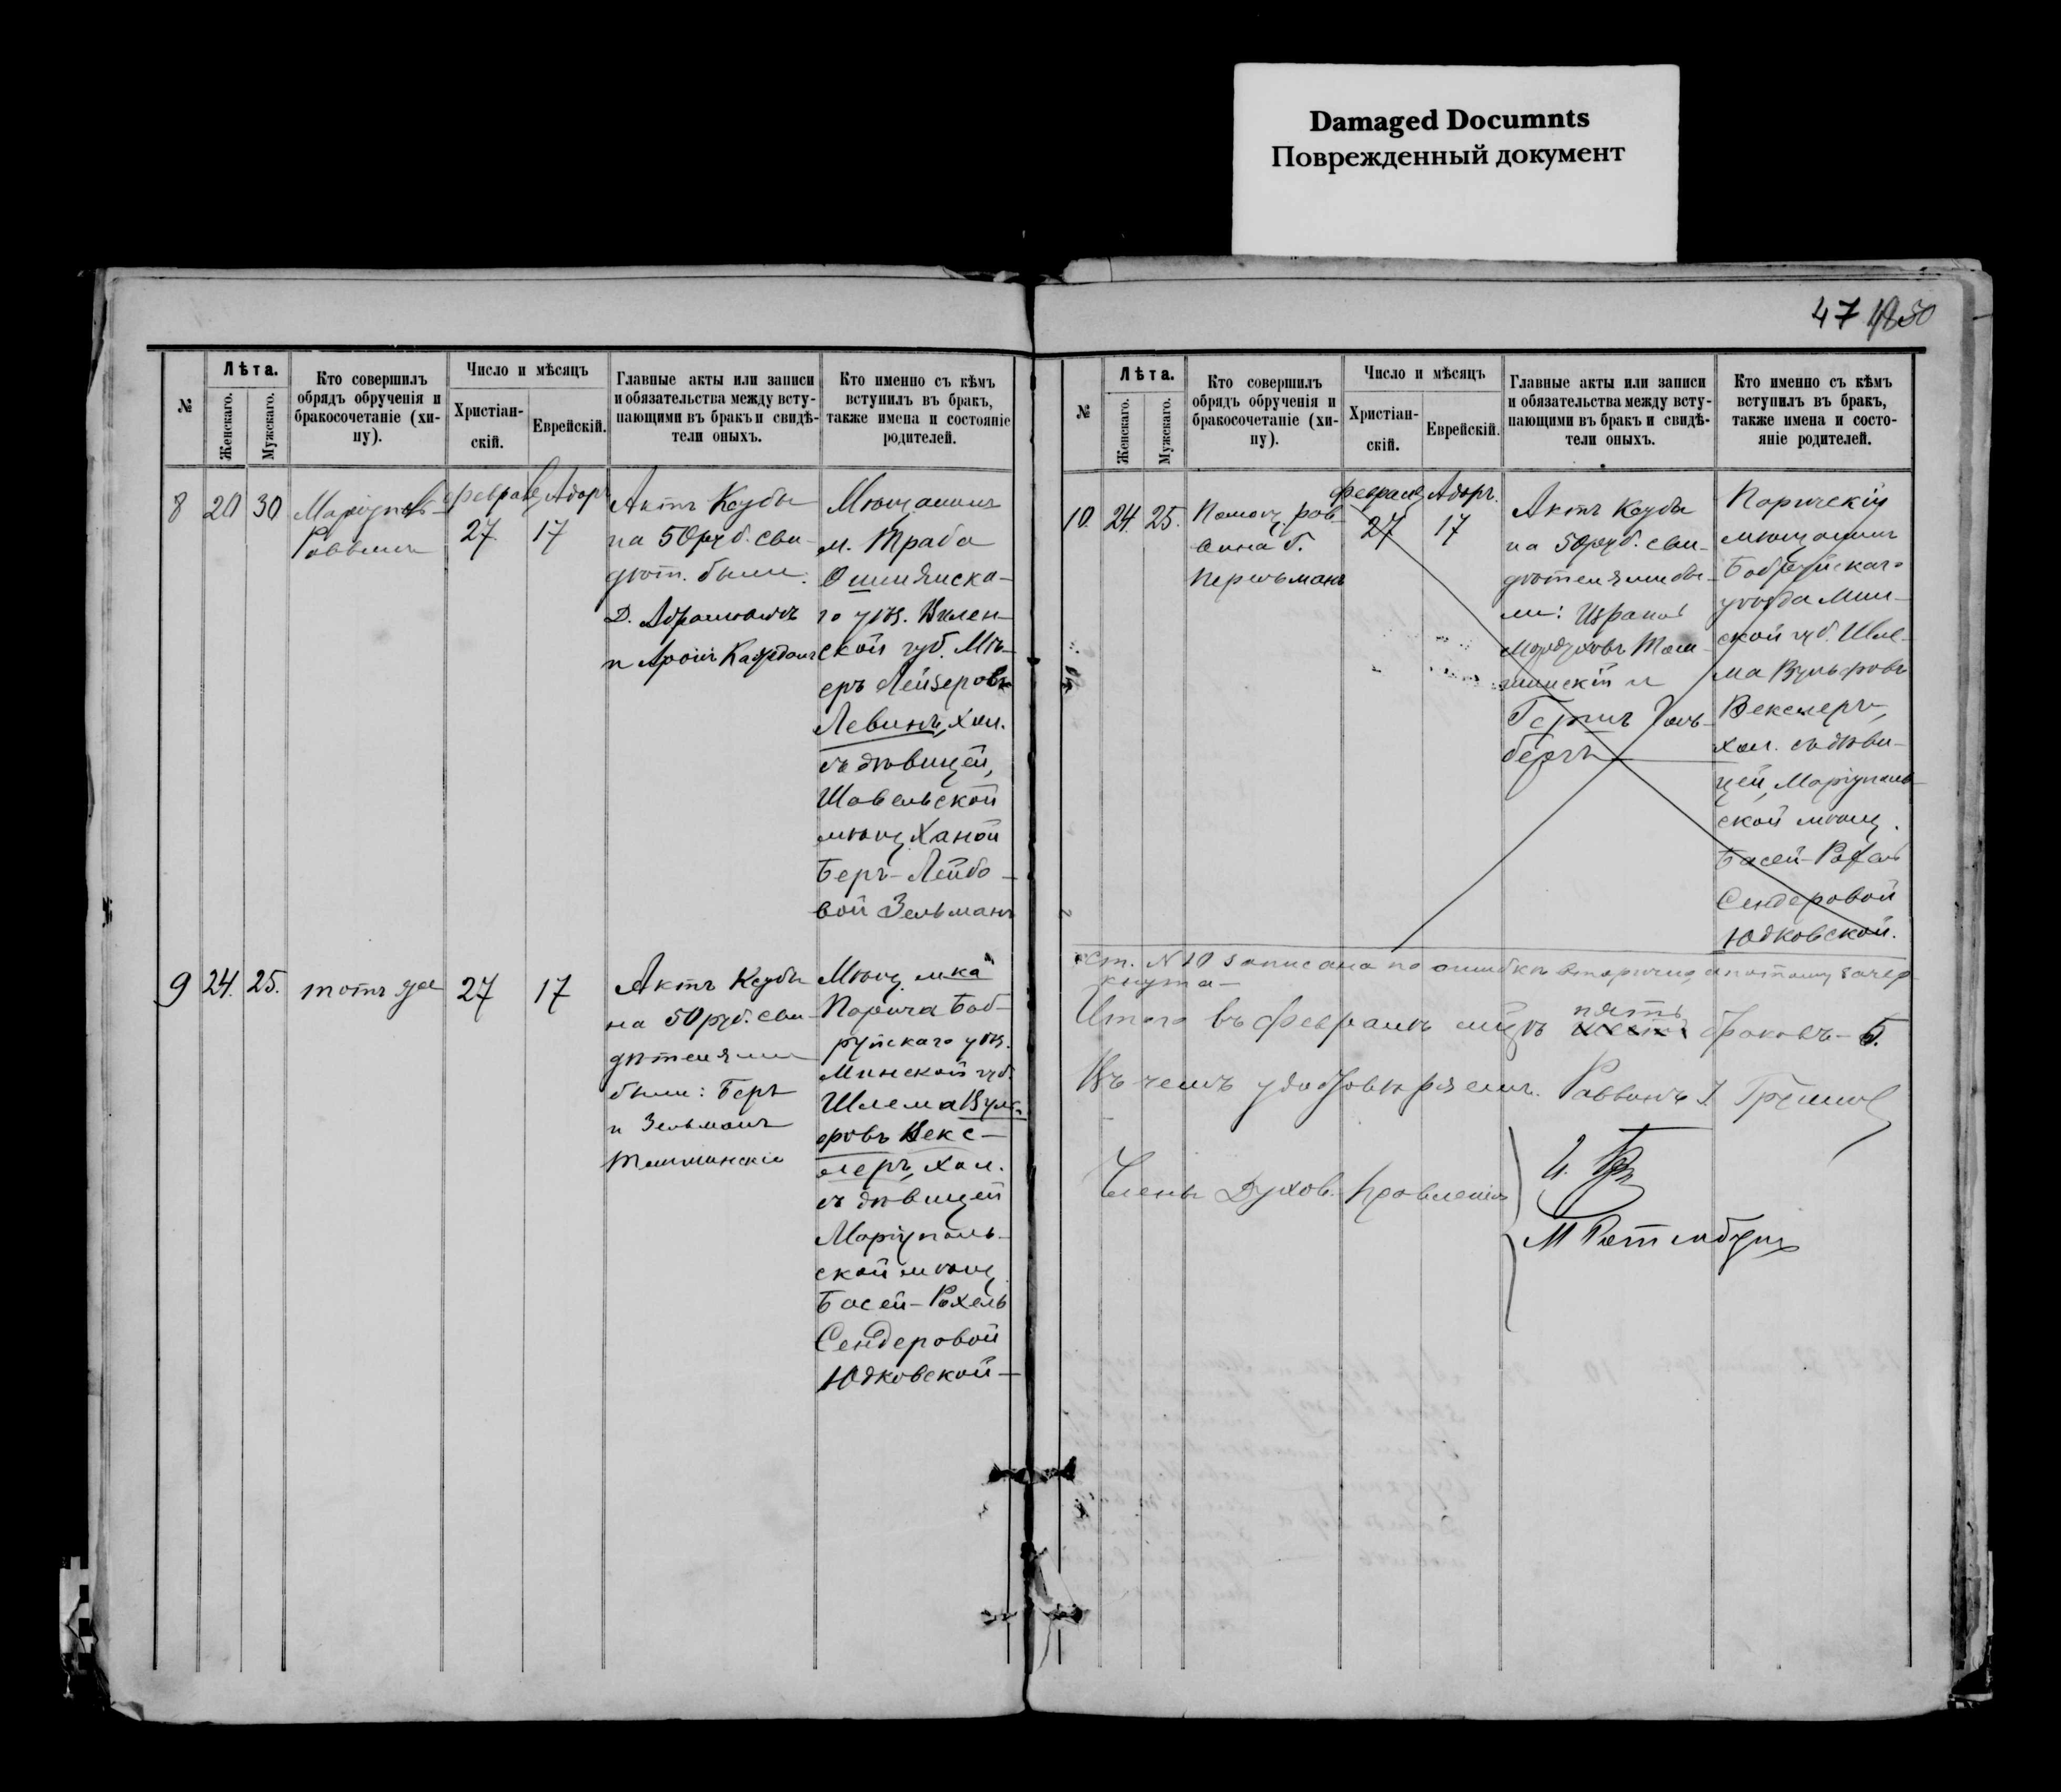 Damaged Documnts
Поврежденный документ
47
№
Лѣта.
Женскаго.
Мужскаго.
Кто совершилъ
обрядъ обрученія и
бракосочетаніе (хи-
пу).
Число и мѣсяцъ
Христіан-
скій.
Еврейскій.
Главные акты или записи
и обязательства между всту-
пающими въ бракъ и свидѣ-
тели оныхъ.
Кто именно съ кѣмъ
вступилъ въ бракъ,
также имена и состояніе
родителей.
8
20
30
Маріупол.
Раввинъ
Февраль
27
Адаръ
17
Актъ Ксубы
на 50 руб. сви-
дѣт. были:
Д. Абрамовичъ
и Аронъ
Мѣщанинъ
м. Траба
Ошмянска-
го уѣз. Вилен-
ской губ. Мѣ-
еръ Лейзеровъ
Левинъ, хол.
съ дѣвицей,
Шавельской
мѣщ. Ханой
Беръ-Лейбо-
вой Зельманъ
9
24.
25.
тотъ же
27
17
Актъ Ксубы
на 50 руб. сви-
дѣтелями
были: Беръ
и Зельманъ
Мѣщ. м-ка
Парича Боб-
руйскаго уѣз.
Минской губ.
Шлема Вуль-
фовъ Векс-
леръ, хол.
съ дѣвицей
Маріуполь-
ской мѣщ.
Басей-Рохель
Сендеровой
Юдковской-
№
Лѣта.
Женскаго.
Мужскаго.
Кто совершилъ
обрядъ обрученія и
бракосочетаніе (хи-
пу).
Число и мѣсяцъ
Христіан-
скій.
Еврейскій.
Главные акты или записи
и обязательства между всту-
пающими въ бракъ и свидѣ-
тели оныхъ.
Кто именно съ кѣмъ
вступилъ въ бракъ,
также имена и состо-
яніе родителей.
10.
24.
25.
Помощ. рав-
вина Г.
Перельманъ
Февраль
27
Адаръ.
17
Актъ Ксубы
на 50 руб. сви-
дѣтелями бы-
ли:
Паричскій
мѣщанинъ
Бобруйскаго
уѣзда Мин-
ской губ. Шле-
ма Вульфовъ
Векслеръ,
хол. съ дѣви-
цей, Маріуполь-
ской мѣщ.
Басей-Рохель
Сендеровой
Юдковской.
ст. № 10 записана по ошибкѣ вторично, а потому зачер-
кнута-
пять
Итого въ Февралѣ м-цѣ шесть браковъ- 5.
Въ чемъ удостовѣряемъ. Раввинъ
Члены Духов. Правленія